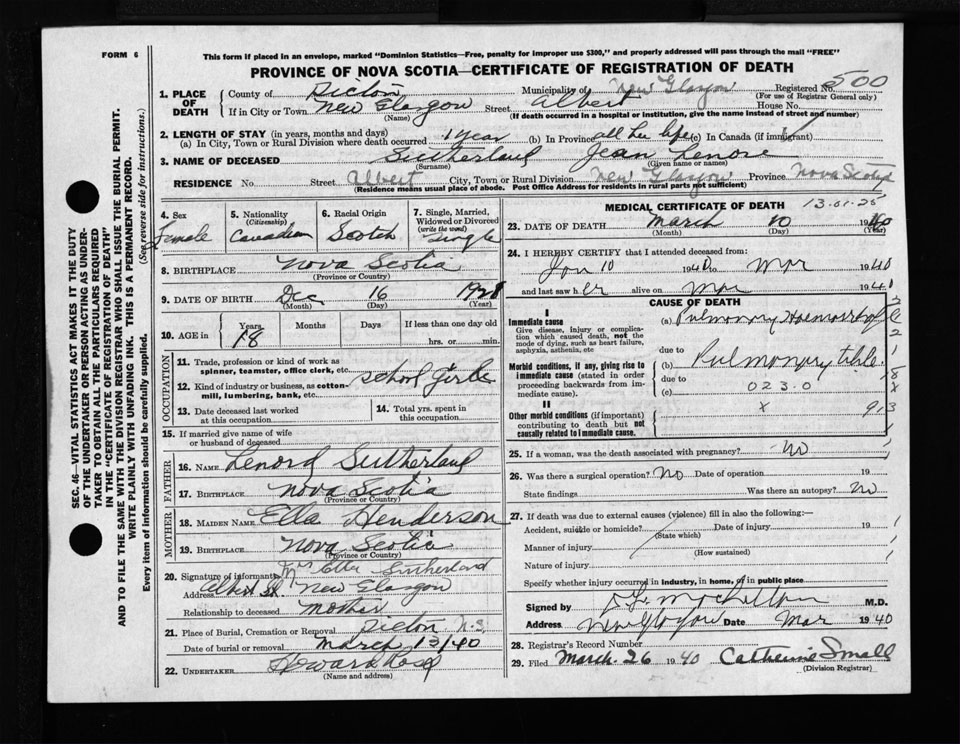 FORM 6
This form if placed in an envelope, marked "Dominion Statistics—Free, penalty for improper use $300," and properly addressed will pass through the mail "FREE"
PROVINCE OF NOVA SCOTIA—CERTIFICATE OF REGISTRATION OF DEATH
SEC. 46—VITAL STATISTICS ACT MAKES IT THE DUTY
OF THE UNDERTAKER OR PERSON ACTING AS UNDER-
TAKER TO OBTAIN ALL THE PARTICULARS REQUIRED
IN THE "CERTIFICATE OF REGISTRATION OF DEATH"
AND TO FILE THE SAME WITH THE DIVISION REGISTRAR WHO SHALL ISSUE THE BURIAL PERMIT.
WRITE PLAINLY WITH UNFADING INK. THIS IS A PERMANENT RECORD.
Every item of information should be carefully supplied. (See reverse side for instructions.)
1. PLACE OF DEATH
County of Pictou Municipality of New Glasgow Registered No. 500
(For use of Registrar General only)
If in City or Town New Glasgow Street Albert House No.
(Name) (If death occurred in a hospital or institution, give the name instead of street and number)
2. LENGTH OF STAY (in years, months and days)
(a) In City, Town or Rural Division where death occurred 1 year (b) In Province all her life (c) In Canada (if immigrant)
3. NAME OF DECEASED Sutherland Jean Lenore
(Surname) (Given name or names)
RESIDENCE No. Street Albert City, Town or Rural Division New Glasgow Province Nova Scotia
(Residence means usual place of abode. Post Office Address for residents in rural parts not sufficient)
4. Sex Female
5. Nationality (Citizenship) Canadian
6. Racial Origin Scotch
7. Single, Married, Widowed or Divorced (write the word) Single
8. BIRTHPLACE Nova Scotia
(Province or Country)
9. DATE OF BIRTH Dec 16
(Month) (Day) (Year)
10. AGE in Years Months Days If less than one day old
18 hrs. or min.
OCCUPATION
11. Trade, profession or kind of work as spinner, teamster, office clerk, etc. School Girl
12. Kind of industry or business, as cotton-mill, lumbering, bank, etc.
13. Date deceased last worked at this occupation
14. Total yrs. spent in this occupation
15. If married give name of wife or husband of deceased
FATHER
16. NAME Lenord Sutherland
17. BIRTHPLACE Nova Scotia
(Province or Country)
MOTHER
18. MAIDEN NAME Ella Henderson
19. BIRTHPLACE Nova Scotia
(Province or Country)
20. Signature of informant Mrs Ella Sutherland
Address Albert St. New Glasgow
Relationship to deceased mother
21. Place of Burial, Cremation or Removal Pictou N.S.
Date of burial or removal March 13/40
22. UNDERTAKER Howard Ross
(Name and address)
MEDICAL CERTIFICATE OF DEATH
13-01-25
23. DATE OF DEATH March 10 1940
(Month) (Day) (Year)
24. I HEREBY CERTIFY that I attended deceased from:
Jan 10 1940 to Mar 1940
and last saw her alive on Mar 1940
CAUSE OF DEATH
I
Immediate cause (a) Pulmonary Haemorrhage
Give disease, injury or complication which caused death, not the mode of dying, such as heart failure, asphyxia, asthenia, etc
due to
Morbid conditions, if any, giving rise to immediate cause (stated in order proceeding backwards from immediate cause). (b) Pulmonary tbc
due to
(c) 023.0
II
Other morbid conditions (if important) contributing to death but not causally related to immediate cause. x 913
25. If a woman, was the death associated with pregnancy? No
26. Was there a surgical operation? No Date of operation 19
State findings Was there an autopsy? No
27. If death was due to external causes (violence) fill in also the following:—
Accident, suicide or homicide? Date of injury 19
(State which)
Manner of injury
(How sustained)
Nature of injury
Specify whether injury occurred in industry, in home, or in public place
Signed by M.D.
Address New Glasgow Date Mar 1940
28. Registrar's Record Number
29. Filed March 26 1940 Catherine Small
(Division Registrar)